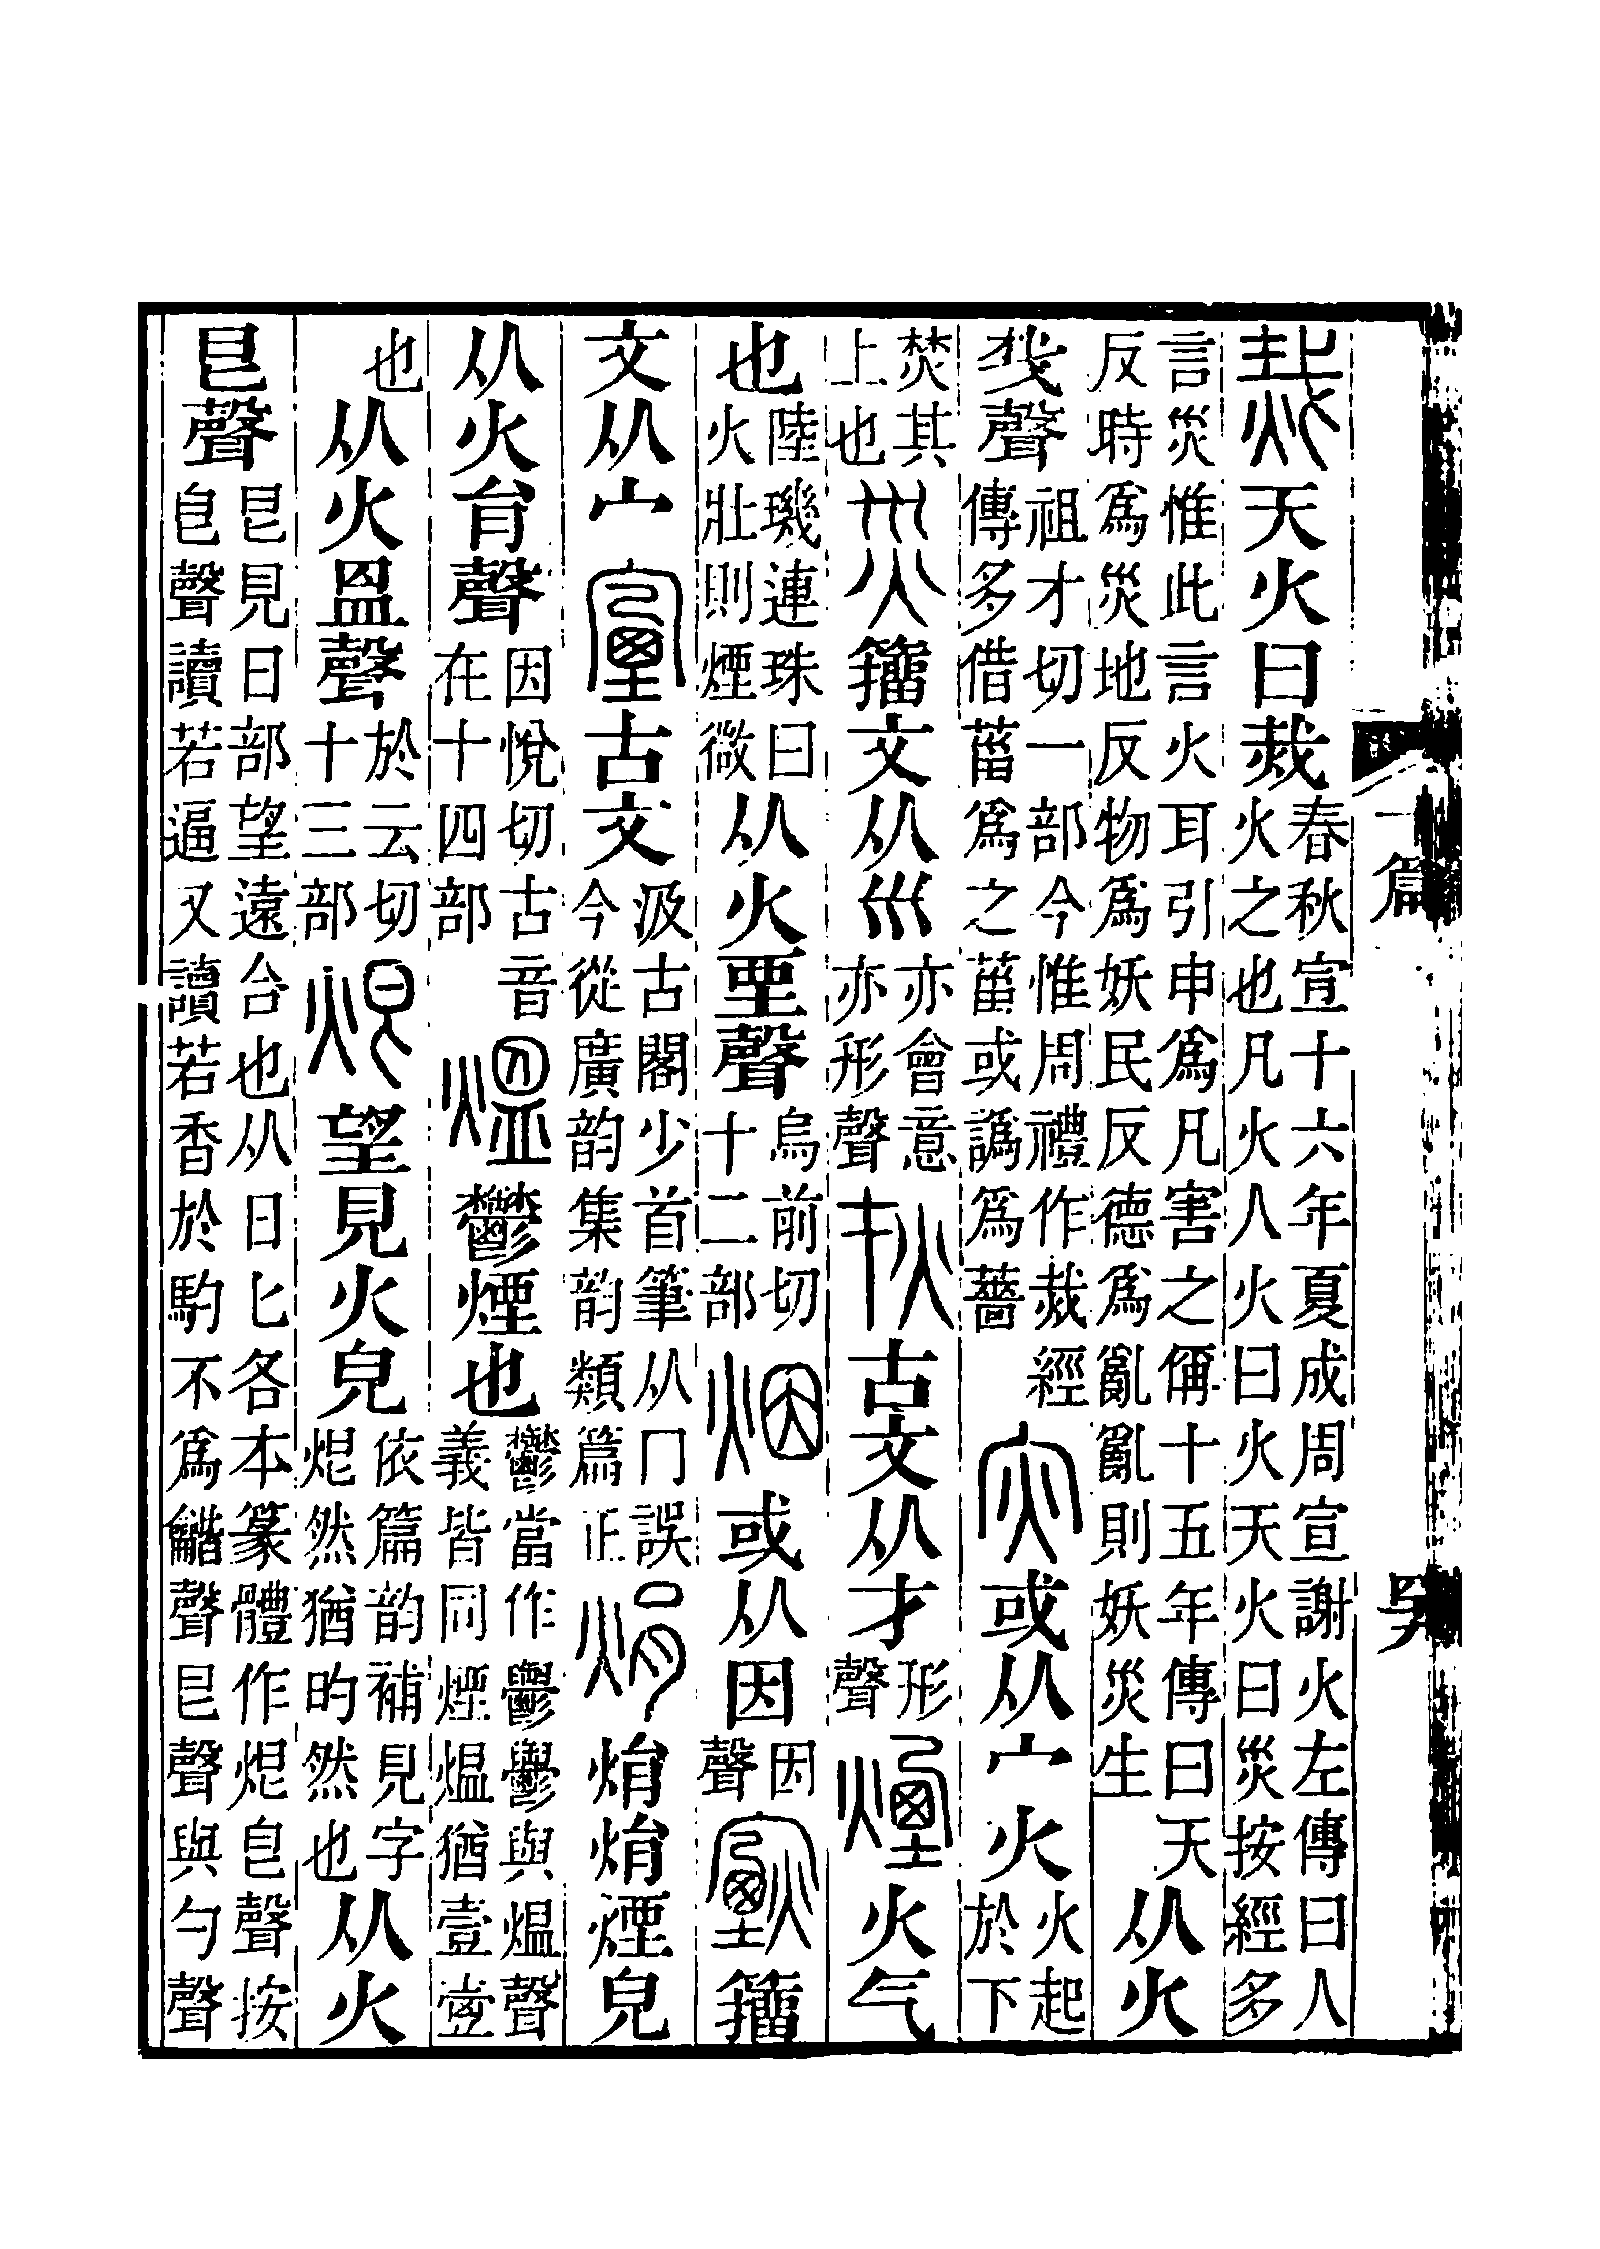 篇
烖天火曰烖春秋宣十六年夏成周宣謝火左傳曰人火之也凡火人火曰火天火曰災按經多
言災惟此言火耳引申爲凡害之偁十五年傳曰天反時爲災地反物爲妖民反德爲亂亂則妖災生从火
𢦏聲祖才切一部今惟周禮作烖經傳多借菑爲之菑或譌爲薔灾或从宀火火起於下
焚其上也災籒文从𡿧亦會意亦形聲𤆎古文从才形聲煙火气
也陸璣連珠曰火壯則煙微从火垔聲烏前切十二部烟或从因因聲籒
文从宀𡨾古文汲古閣少首筆从冂誤今從廣韵集韵類篇正焆焆焆煙皃
从火肙聲因悅切古音在十四部熅鬱煙也鬱當作與熅聲義皆同煙熅猶壹㚃
也从火𥁕聲於云切十三部望見火皃依篇韵補見字然猶旳然也从火
㫐聲㫐見日部望遠合也从日匕各本篆體作㷎皀聲按皀聲讀若逼又讀若香於駒不爲龤聲㫐聲與勺聲